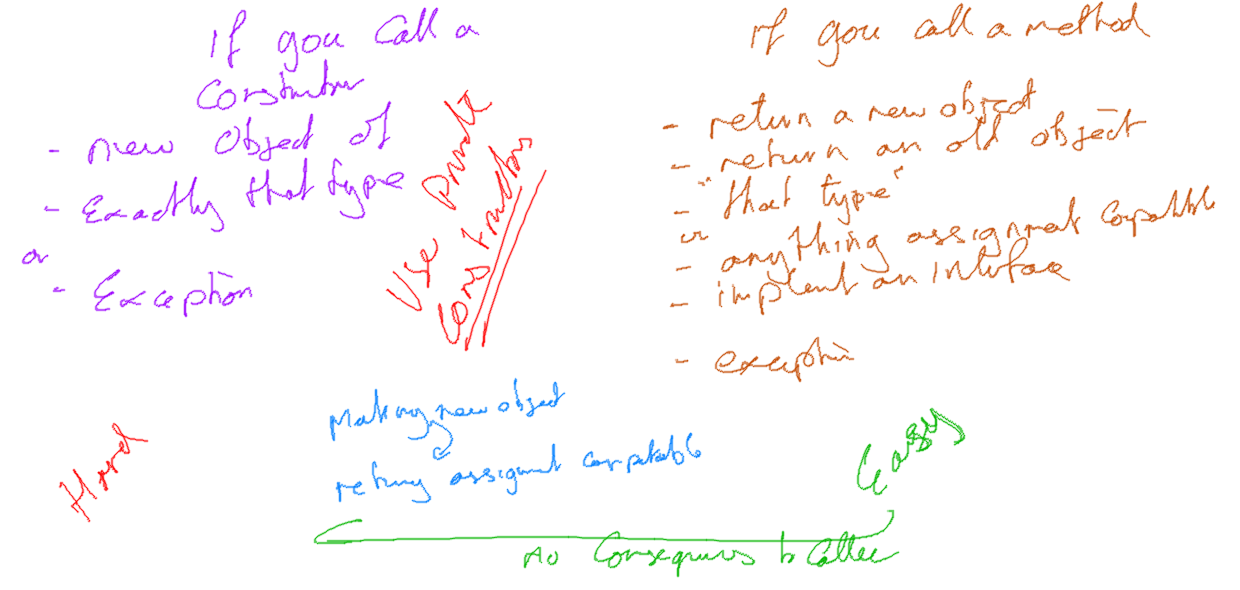 If you call a
Constructor
- new Object of
- Exactly that type
or
- Exception
Use private
Constructors
If you call a method
- return a new object
- return an old object
- "that type"
or
- anything assignment compatible
- implement an interface
- exception
Making new object
returning assignment compatible
Hard
Easy
no Consequences to Caller